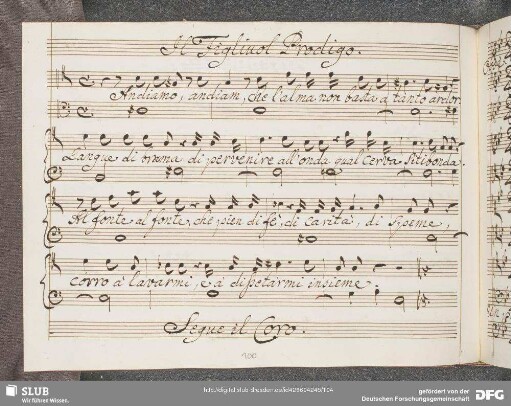 Il Figliuol Prodigo.
Andiamo, andiam, che l'alma non basta a tanto ardor
Langue di brama di pervenire all'onda qual Cerva Sitibonda.
Al fonte al fonte, che pien di fè, di Carità, di Speme,
corro à lavarmi, e a dissetarmi insieme.
Segue il Coro.
100
SLUB
Wir führen Wissen.
gefördert von der
Deutschen Forschungsgemeinschaft
DFG